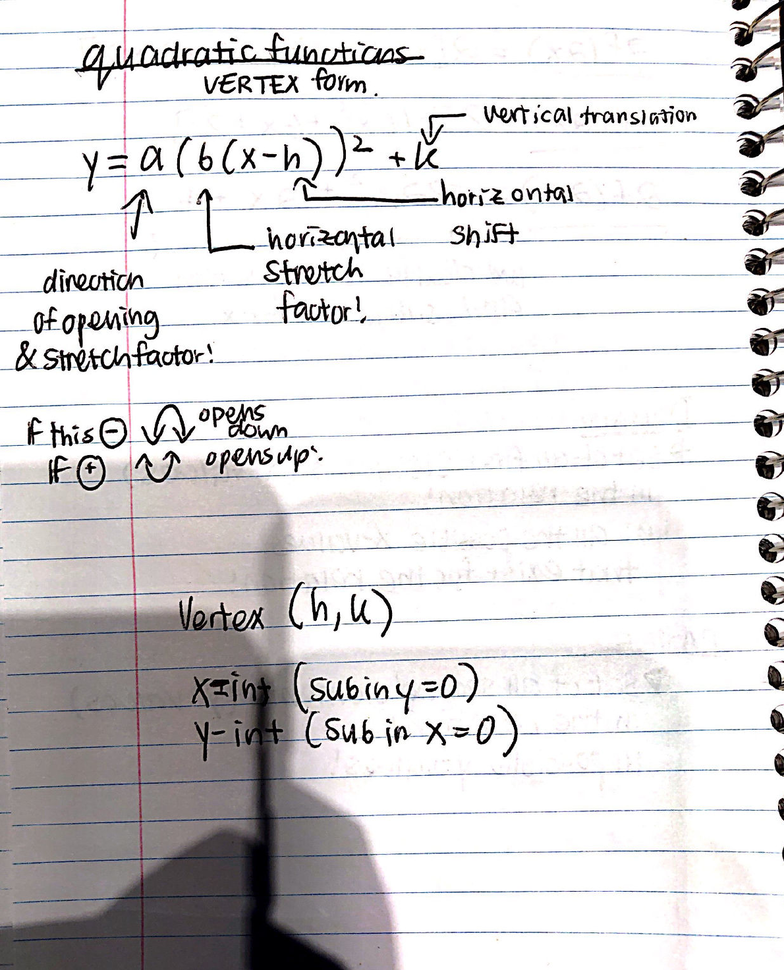 quadratic functions
VERTEX form.
vertical translation
y = a (b(x-h))² + k
horizontal
shift
horizontal
stretch
factor!
direction
of opening
& stretch factor!
if this ⊖ opens
down
If ⊕ opens up.
Vertex (h, k)
x-int (sub in y=0)
y-int (sub in x=0)